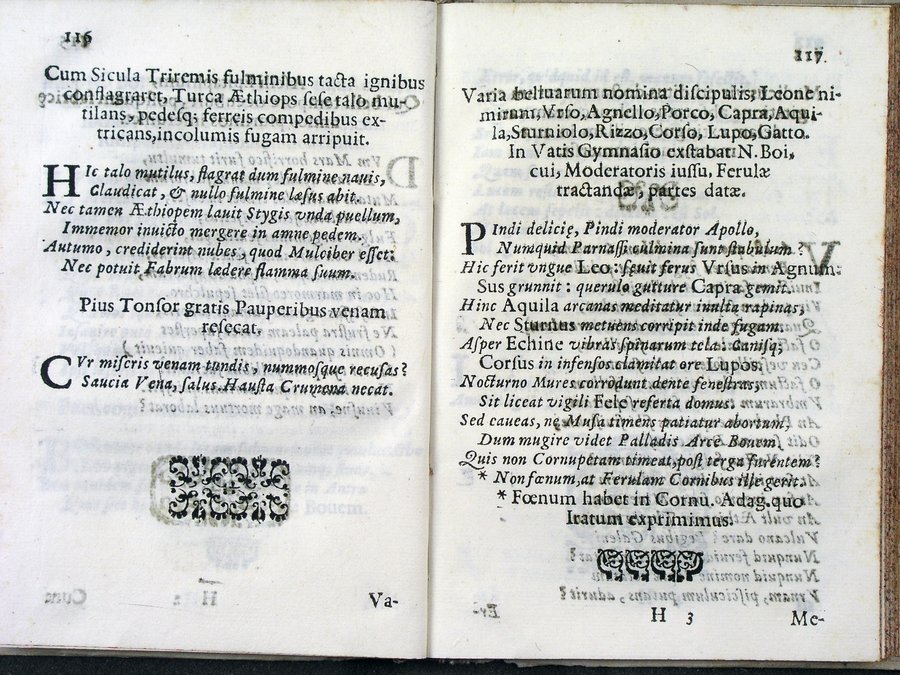 116
Cum Sicula Triremis fulminibus tacta ignibus
conflagraret, Turca Æthiops sese talo mu-
tilans, pedesq; ferreis compedibus ex-
tricans, incolumis fugam arripuit.
HIc talo mutilus, flagrat dum fulmine nauis,
Claudicat, & nullo fulmine læsus abit.
Nec tamen Æthiopem lauit Stygis vnda puellum,
Immemor inuicto mergere in amne pedem.
Autumo, crediderint nubes, quod Mulciber esset:
Nec potuit Fabrum lædere flamma suum.
Pius Tonsor gratis Pauperibus venam
resecat.
CVr miseris venam tundis, nummosque recusas?
Saucia Vena, salus. Hausta Crumena necat.
H
Va-
117.
Varia belluarum nomina discipulis, Leone ni-
mirum, Vrso, Agnello, Porco, Capra, Aqui-
la, Sturniolo, Rizzo, Corso, Lupo, Gatto.
In Vatis Gymnasio exstabat N. Boi,
cui, Moderatoris iussu, Ferulæ
tractandæ, partes datæ.
PIndi delicię, Pindi moderator Apollo,
Numquid Parnassi culmina sunt stabulum?
Hic ferit vngue Leo: sęuit ferus Vrsus in Agnum:
Sus grunnit: querulo gutture Capra gemit.
Hinc Aquila arcanas meditatur inulta rapinas,
Nec Sturnus metuens corripit inde fugam.
Asper Echine vibras spinarum tela: Canisq;
Corsus in infensos clamitat ore Lupos.
Nocturno Mures corrodunt dente fenestras,
Sit liceat vigili Fele referta domus.
Sed caueas, ne Musa timens patiatur abortum,
Dum mugire videt Palladis Arce Bouem.
Quis non Cornupetam timeat, post terga furentem?
* Non fœnum, at Ferulam Cornibus ille gerit.
* Fœnum habet in Cornu. Adag. quo
Iratum exprimimus.
H 3
Me-